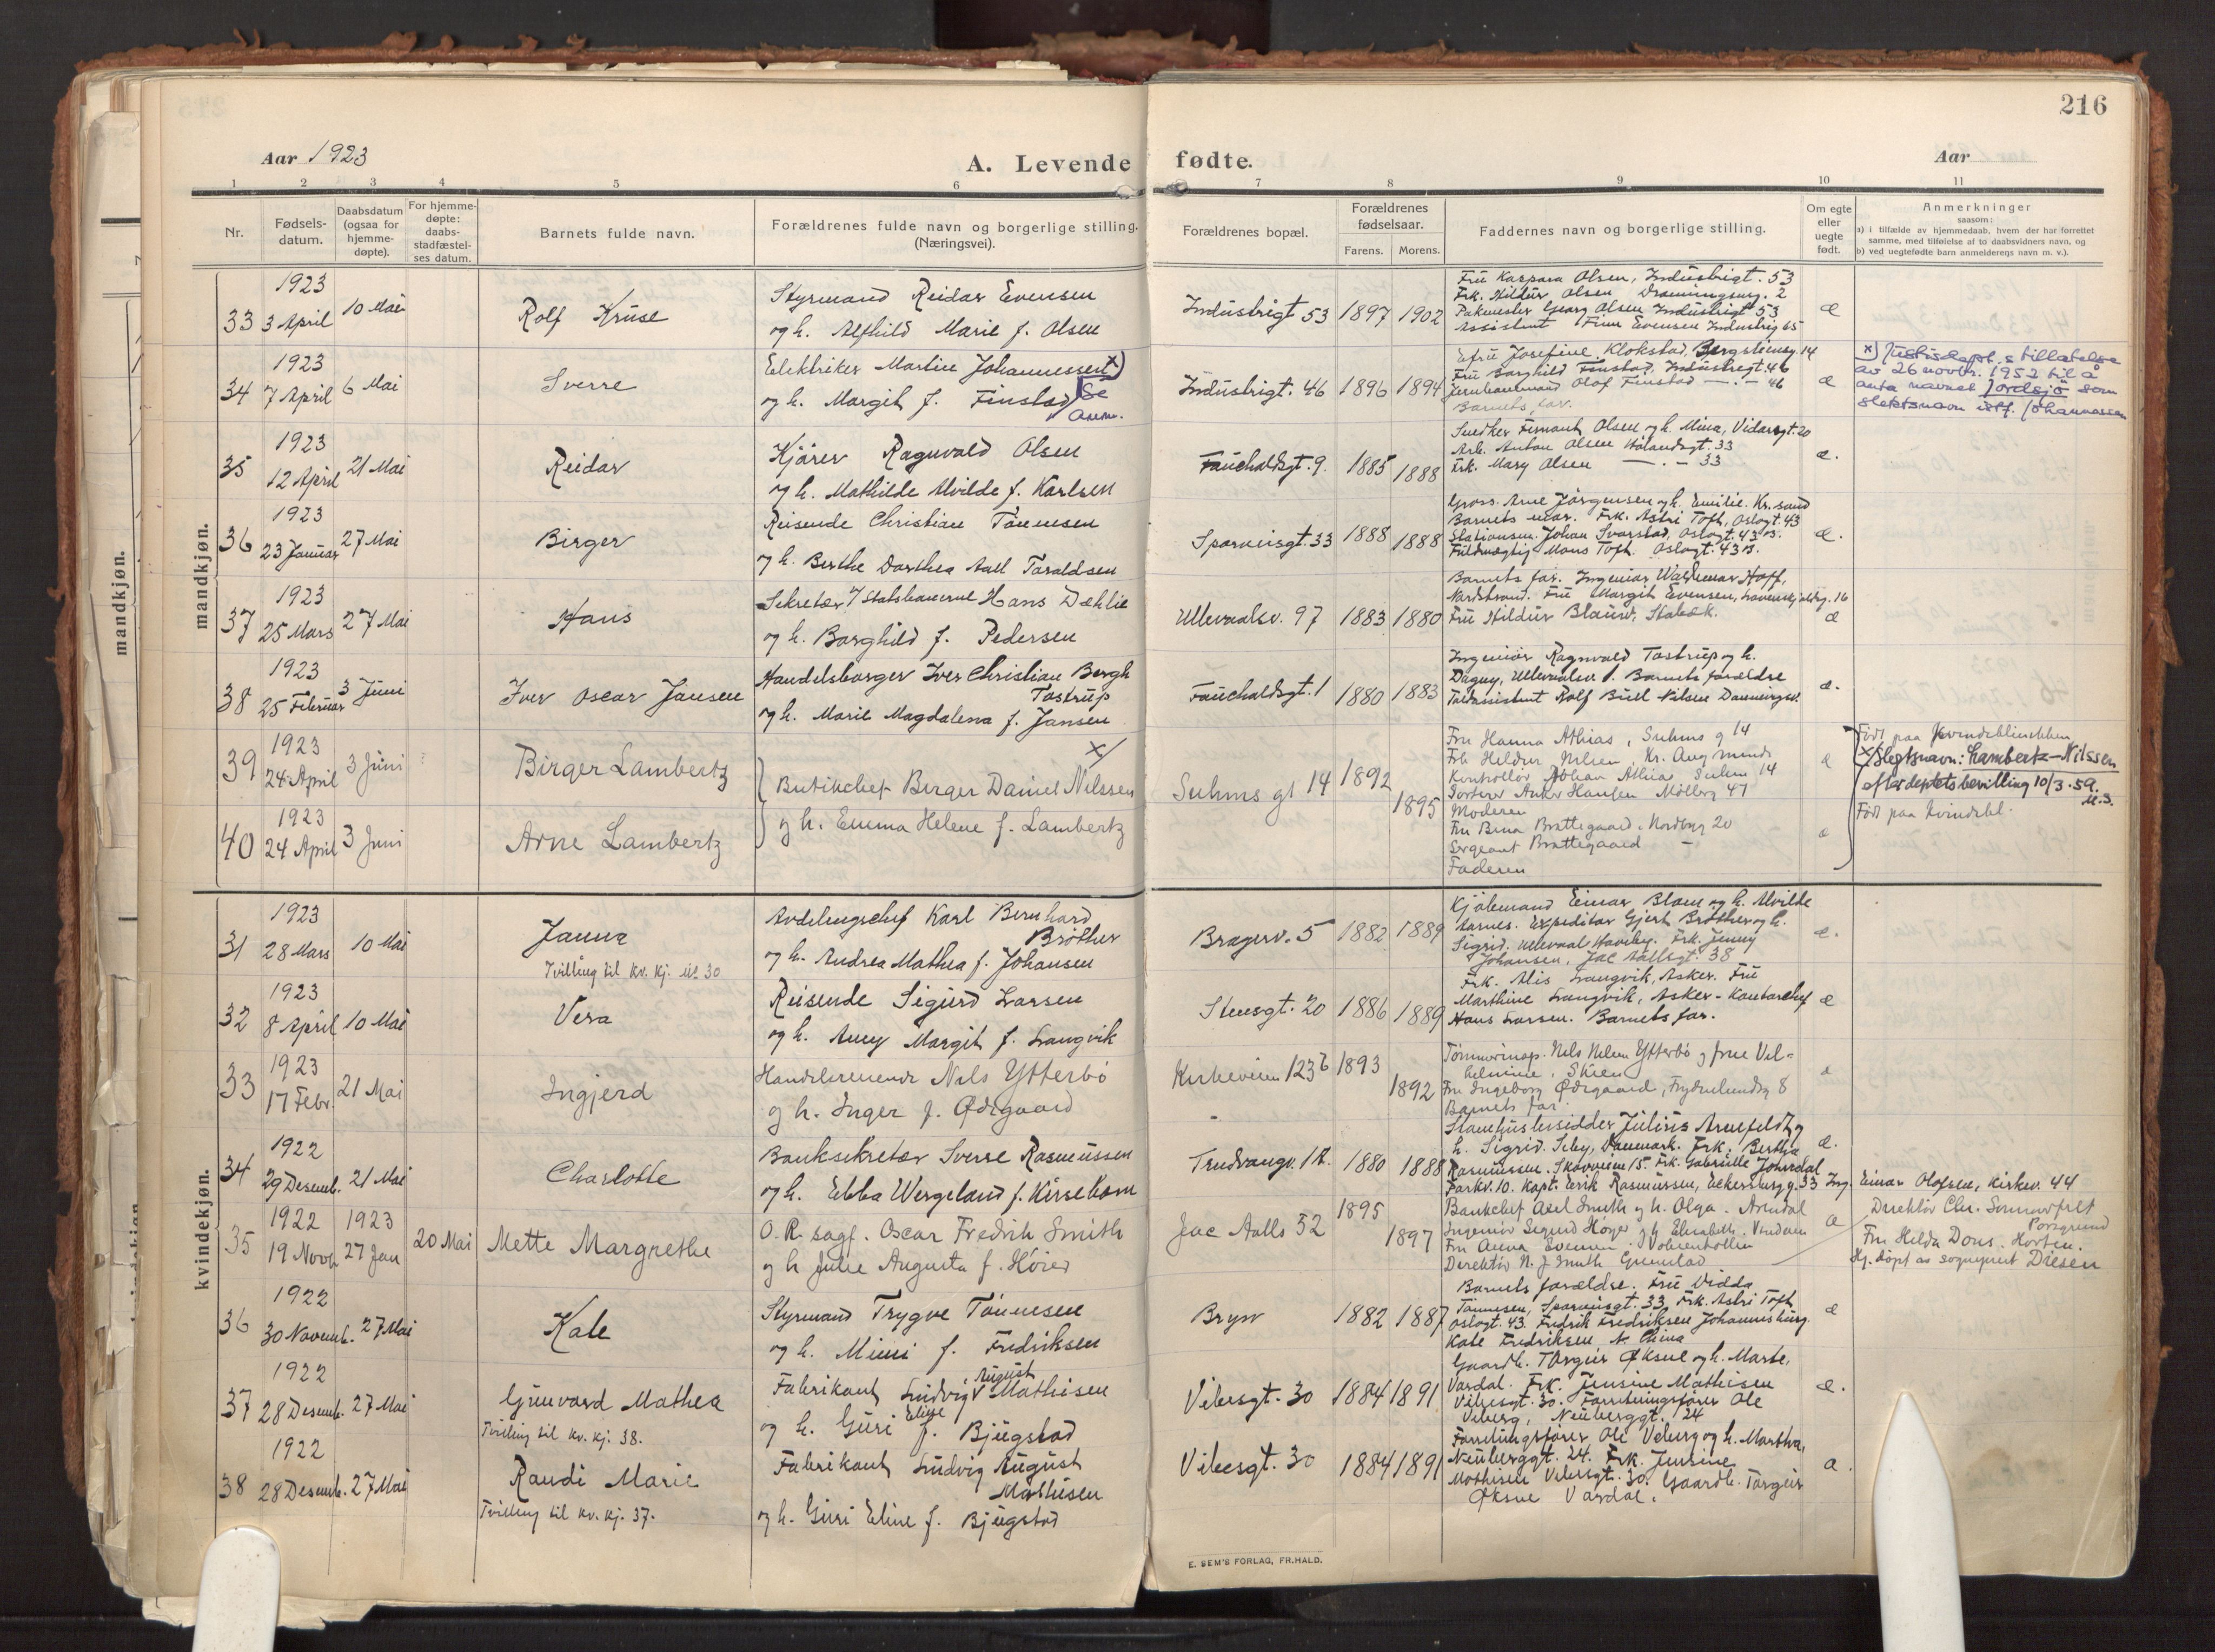 216
Aar 1923
A. Levende
fødte.
Aar
1 2 3 4 5 6 7 8 9 10 11
Nr.
Fødsels-
datum.
Daabsdatum
(ogsaa for
hjemme-
døpte).
For hjemme-
døpte:
daabs-
stadfæstel-
ses datum.
Barnets fulde navn.
Forældrenes fulde navn og borgerlige stilling.
(Næringsvei).
Forældrenes bopæl.
Forældrenes
fødselsaar.
Farens. Morens.
Faddernes navn og borgerlige stilling.
Om egte
eller
uegte
født.
Anmerkninger
saasom:
a) i tilfælde av hjemmedaab, hvem der har forrettet
samme, med tilføielse at to daabsvidners navn, og
b) ved uegtefødte barn anmelderens navn m. v.).
mandkjøn.
mandkjøn.
1923
33 3 April 10 Mai
Rolf Kruse
Styrmand Reidar Evensen
og h. Alfhild Marie f. Olsen
Industrigt 53 1897 1902
Fru Kaspara Olsen, Industrigt. 53
Frk. Hildur Olsen 2
Pakmester Georg Olsen Industrigt 53
Assistent Finn Evensen Industrig 65
æ
1923
34 7 April 6 Mai
Sverre
Elektriker Martin Johannessen x)
og h. Margit f. Finstad Se
anm.
Industrigt. 46 1896 1894
Josefine Klokstad, Bergsliensg. 14
Fru Borghild Finstad, Industrigt. 46
Olof Finstad — . — 46
Barnets far.
æ
x) Justisdept.s tillatelse
av 26 novbr. 1952 til å
anta navnet Jordsjö som
slektsnavn istf. Johannessen
1923
35 12 April 21 Mai
Reidar
Kjører Ragnvald Olsen
og h. Mathilde Alvilde f. Karlsen
Fauchaldsgt. 9. 1885 1888
Snedker Olsen og h. Mina, Vidarsgt. 20
Arb. Anton Olsen 33
Frk. Mary Olsen — . — 33
æ.
1923
36 23 Januar 27 Mai
Birger
Reisende Christian Tönnesen
og h. Berthe Dorthea Aall Taraldsen
Sporveisgt. 33 1888 1888
Gross. Arne Jörgensen og h. Emilie. Kr. sand
Barnets mor. Frk. Astri Toft, Oslogt. 43
Johan Svarstad, Oslogt. 43 B.
Fuldmægtig Mons Toft. Oslogt. 43 B.
æ.
1923
37 25 Mars 27 Mai
Hans
Sekretær v/ Statsbanerne Hans Dæhlie
og h. Borghild f. Pedersen
Ullevaalsv. 97 1883 1880
Barnets far. Ingeniør Waldemar Hoff,
Nordstrand. Fru Margit Evensen, 16
Fru Hildur Stabæk.
æ
1923
38 25 Februar 3 Juni
Iver Oscar Jansen
Handelsborger Iver Christian Bergh
Tostrup
og h. Marie Magdalena f. Jansen
Fauchaldsgt. 1 1880 1883
Ingeniør Ragnvald Tostrup og h.
Dagny, Ullevaalsv 1. Barnets forældre
Rolf Buell Nilsen
æ.
1923
39 24 April 3 Juni
Birger Lambertz
x/
Butikchef Birger Daniel Nilssen
og h. Emma Helene f. Lambertz
Suhms gt 14 1892 1895
Fru Hanna Athias, Suhms g 14
Frk Hildur Nilsen, Kr. Aug
Kontrollør Johan Athias Suhm 14
Anker Hansen Møllerg 47
Moderen
æ
Født paa Kvindeklinikken
x/ Slegtsnavn: Lambertz-Nilssen
efter deptets bevilling 10/3-59.
1923
40 24 April 3 Juni
Arne Lambertz
Fru Bina Brattegaard. Nordbyg 20
Sergeant Brattegaard —
Faderen
æ
Født paa kvindekl.
kvindekjøn.
1923
31 28 Mars 10 Mai
Janna
Tvilling til kv. kj. № 30
Avdelingschef Karl Bernhard
Bröther
og h. Andrea Mathea f. Johansen
Bragerv. 5 1882 1889
Einar Blom og h. Alvilde
Aarnes. Expeditør Gjert Bröther og h.
Sigrid. Ullevaal Haveby. Frk. Jenny
Johansen, Jac Aallsgt. 38
æ.
1923
32 8 April 10 Mai
Vera
Reisende Sigurd Larsen
og h. Amy Margit f. Langvik
Stensgt. 20 1886 1889
Frk. Alis Langvik, Asker. Fru
Marthine Langvik, Asker - Kontorchef
Hans Larsen. Barnets far.
æ
1923
33 17 Febr. 21 Mai
Ingjerd
Handelsreisende Nils Ytterbö
og h. Inger f. Ødegaard
Kirkeveien 123 b 1893 1892
Nils Nilsen Ytterbö og frue Vil-
helmine, Skien
Fru Ingeborg Ødegaard, Frydenlundsg 8
Barnets far.
æ
1922
34 29 Desemb. 21 Mai
Charlotte
Banksekretær Sverre Rasmussen
og h. Ebba Wergeland f. Kirsebom
Trudvangv. 12. 1880 1888
Julius Arnefeldt og
h. Sigrid. Seby, Danmark. Frk. Bertha
Rasmussen. Skovveien 15. Frk. Gabrielle Johnsdal
Parkv. 10. Kapt. Erik Rasmussen, Eckersbergg. 33 Ing. Einar Olafsen, Kirkev. 44
æ.
1922 1923
35 19 Novb 27 Jan 20 Mai
Mette Margrethe
O. R. sagf. Oscar Fredrik Smith
og h Julie Augusta f. Höier
Jac Aalls 52 1895 1897
Bankchef Axel Smith og h. Olga. Arendal
Ingeniør Sigurd Höyer og h Elisabeth.
Fru Anna Evensen.
Direktør N. J Smith Grimstad
æ
Direktør Chr. Sommerfelt
Porsgrund
Fru Helda Dons. Horten.
Hj. döpt av sogneprest Diesen
1922
36 30 Novemb. 27 Mai
Kate
Styrmand Trygve Tönnesen
og h. Mimi f. Fredriksen
Bryn 1882 1887
Barnets forældre. Fru Vidda
Tönnesen, Sporveisgt. 33, Frk. Astri Toft
Oslogt. 43. Fredrik Fredriksen Johannisburg
Kate Fredriksen N. China
æ
1922
37 28 Desemb. 27 Mai
Gunvord Mathea
Tvilling til kv. kj. 38.
Fabrikant Ludvig August Mathisen
og h. Guri Eline f. Bjugstad
Vibesgt. 30 1884 1891
Gaardb. Torgeir Øksne og h. Marte,
Vardal. Frk. Jensine Mathisen
Vibesgt. 30. Forretningsfører Ole
Veberg, Neuberggt. 24
æ.
1922
38 28 Desemb. 27 Mai
Randi Marie
Tvilling til kv. kj. 37.
Fabrikant Ludvig August
Mathisen
og h. Guri Eline f. Bjugstad
Vibesgt. 30 1884 1891
Forretningsfører Ole Veberg og h. Martha,
Neuberggt. 24. Frk. Jensine
Mathisen Vibesgt. 30. Gaardb. Torgeir
Øksne Vardal.
æ.
E. SEM'S FORLAG, FR.HALD.